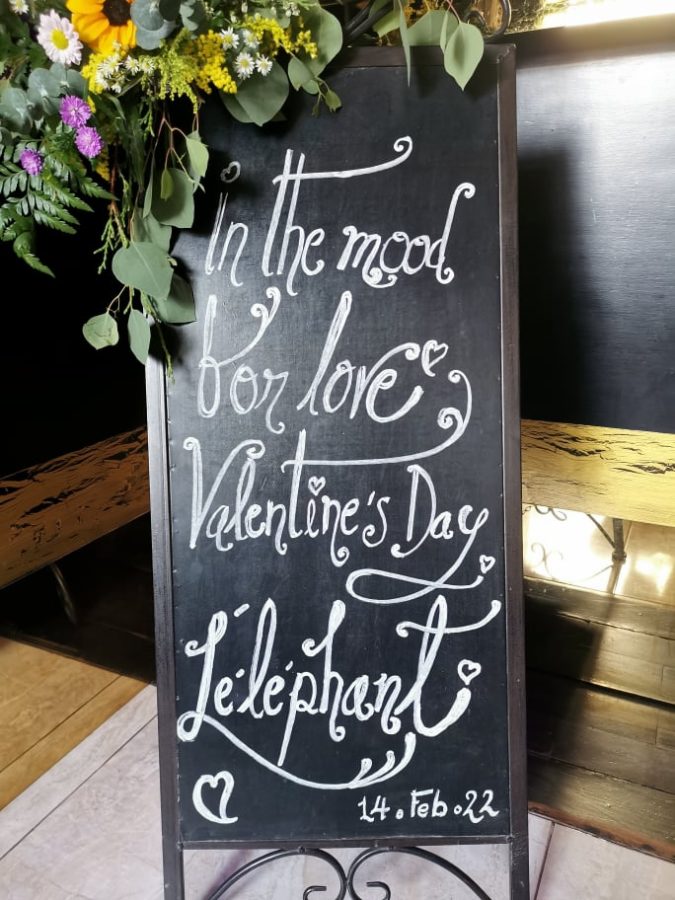 In the mood
for love
Valentine's Day
L'éléphant
14.Feb.22